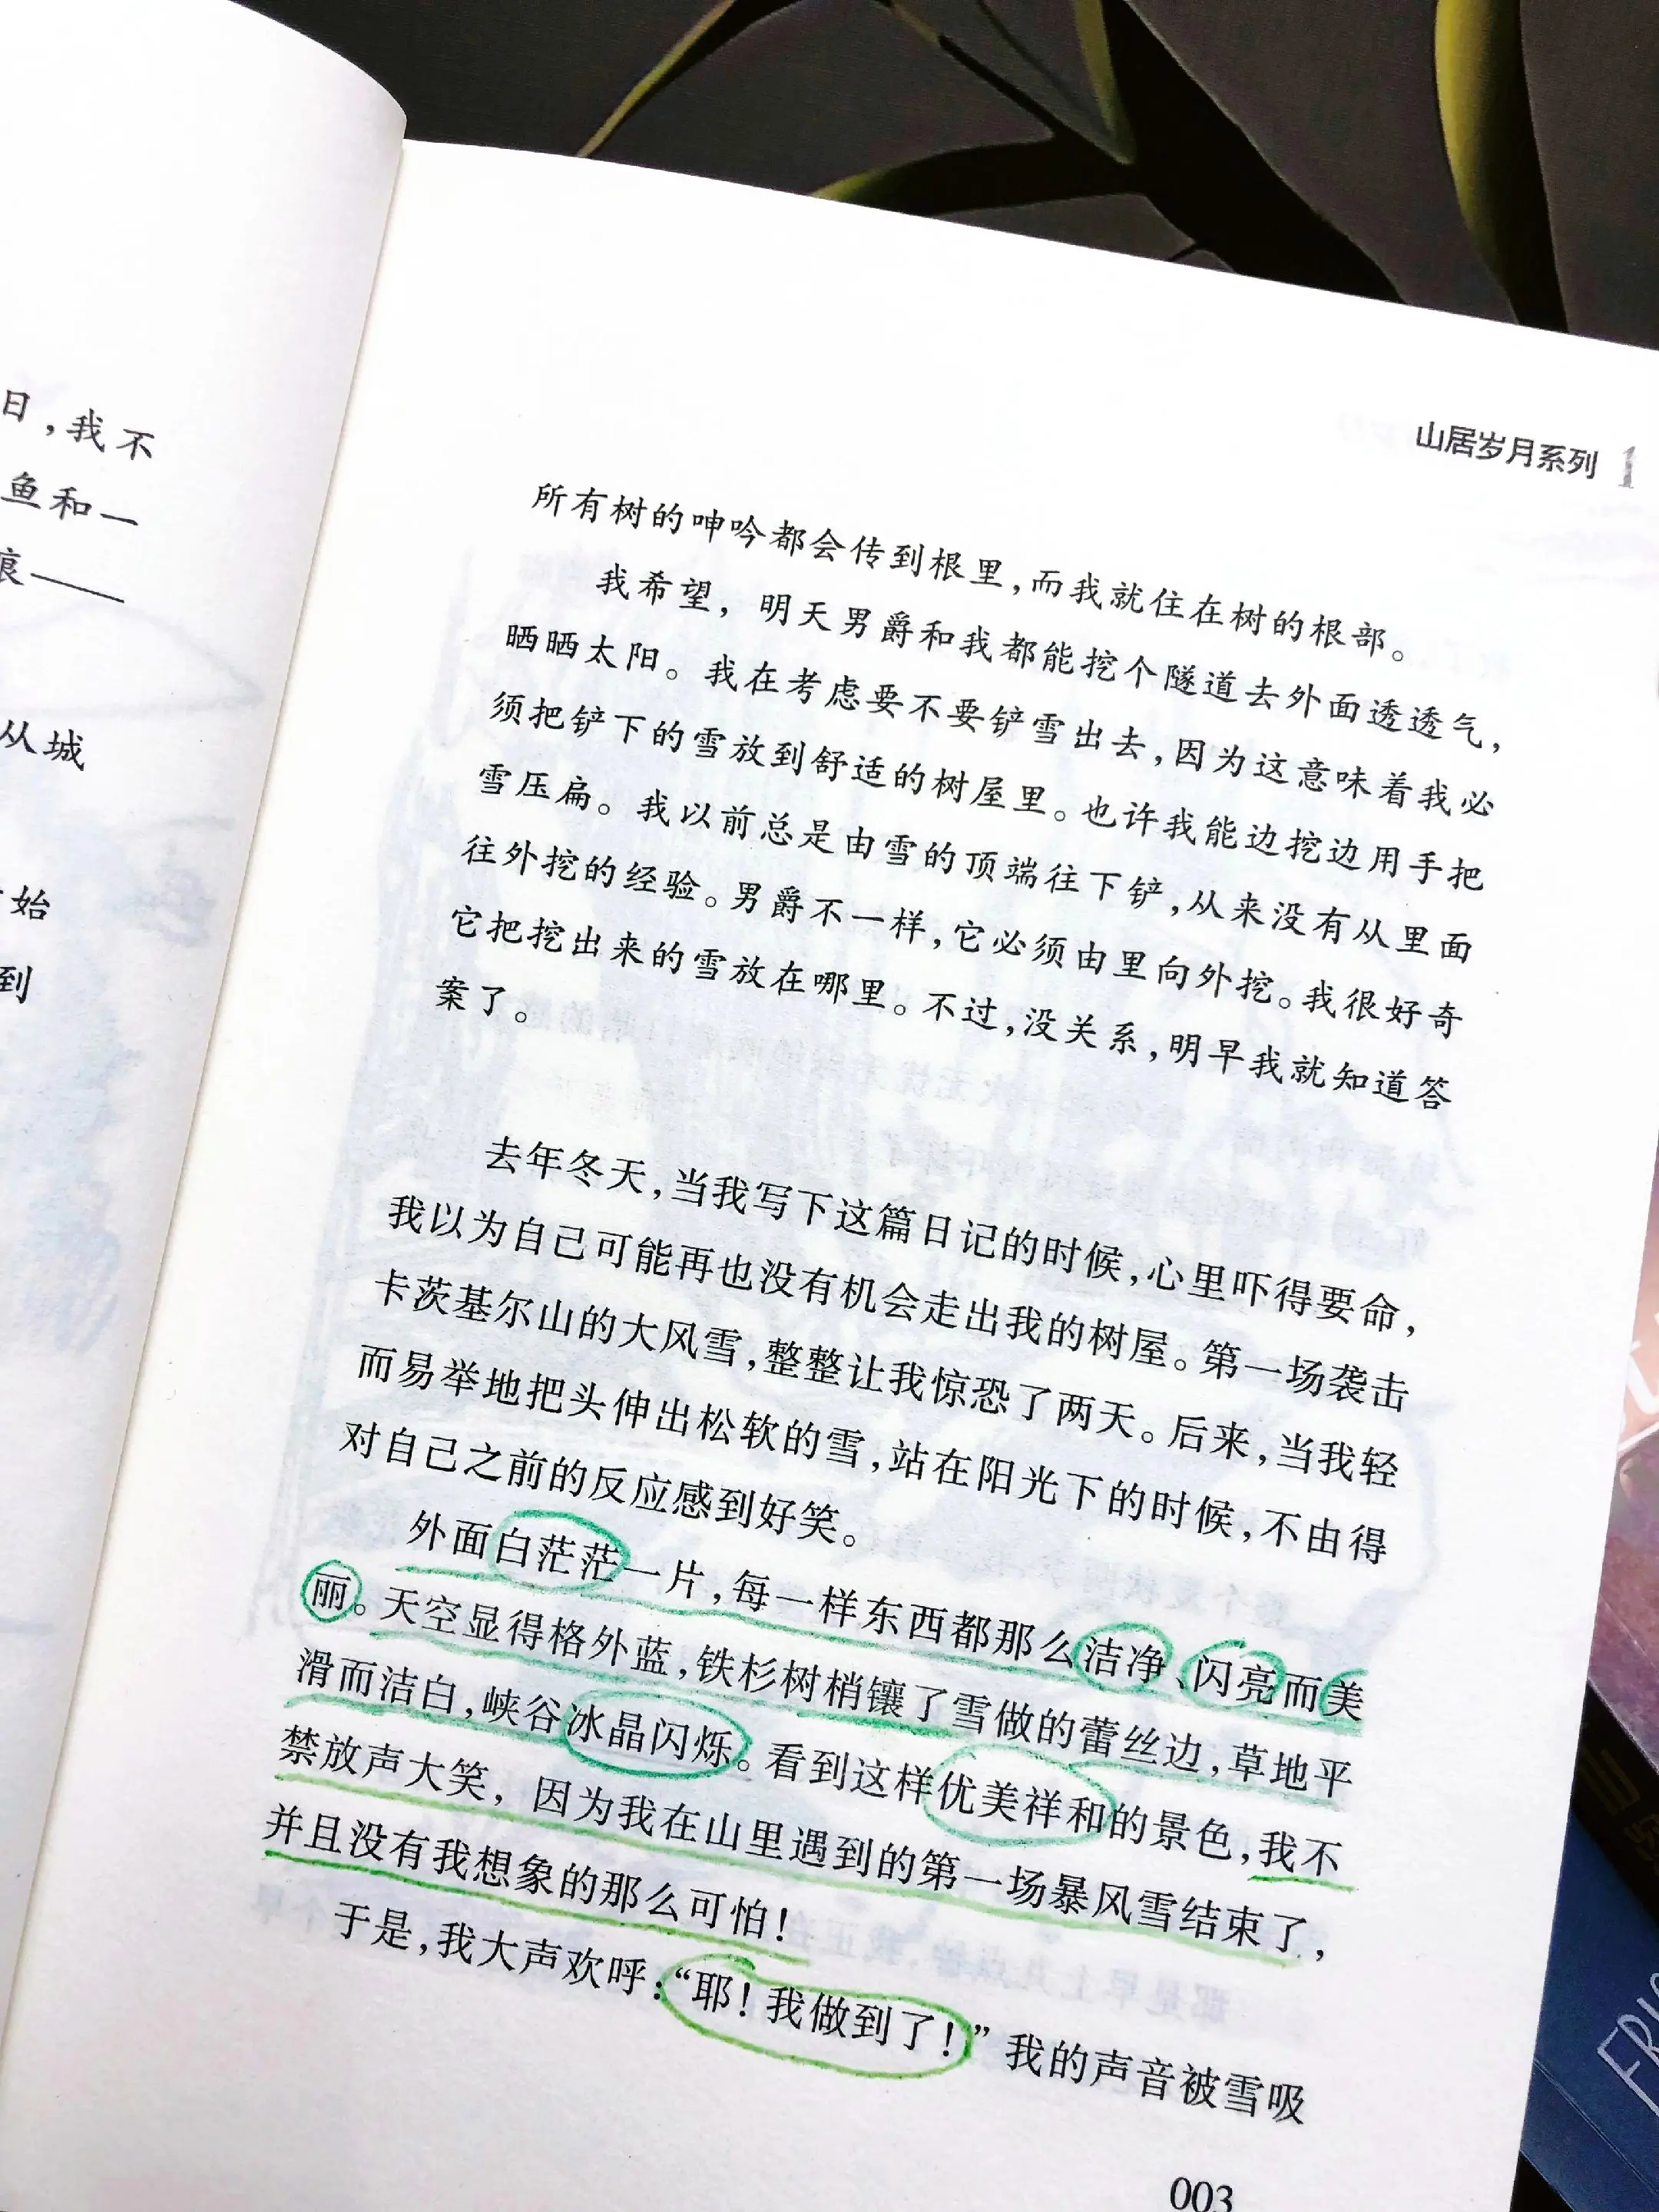 日，我不
鱼和一
痕——
从城
始
到
山居岁月系列 1
所有树的呻吟都会传到根里，而我就住在树的根部。
我希望，明天男爵和我都能挖个隧道去外面透透气，
晒晒太阳。我在考虑要不要铲雪出去，因为这意味着我必
须把铲下的雪放到舒适的树屋里。也许我能边挖边用手把
雪压扁。我以前总是由雪的顶端往下铲，从来没有从里面
往外挖的经验。男爵不一样，它必须由里向外挖。我很好奇
它把挖出来的雪放在哪里。不过，没关系，明早我就知道答
案了。
去年冬天，当我写下这篇日记的时候，心里吓得要命，
我以为自己可能再也没有机会走出我的树屋。第一场袭击
卡茨基尔山的大风雪，整整让我惊恐了两天。后来，当我轻
而易举地把头伸出松软的雪，站在阳光下的时候，不由得
对自己之前的反应感到好笑。
外面白茫茫一片，每一样东西都那么洁净、闪亮而美
丽。天空显得格外蓝，铁杉树梢镶了雪做的蕾丝边，草地平
滑而洁白，峡谷冰晶闪烁。看到这样优美祥和的景色，我不
禁放声大笑，因为我在山里遇到的第一场暴风雪结束了，
并且没有我想象的那么可怕！
于是，我大声欢呼：“耶！我做到了！”我的声音被雪吸
003